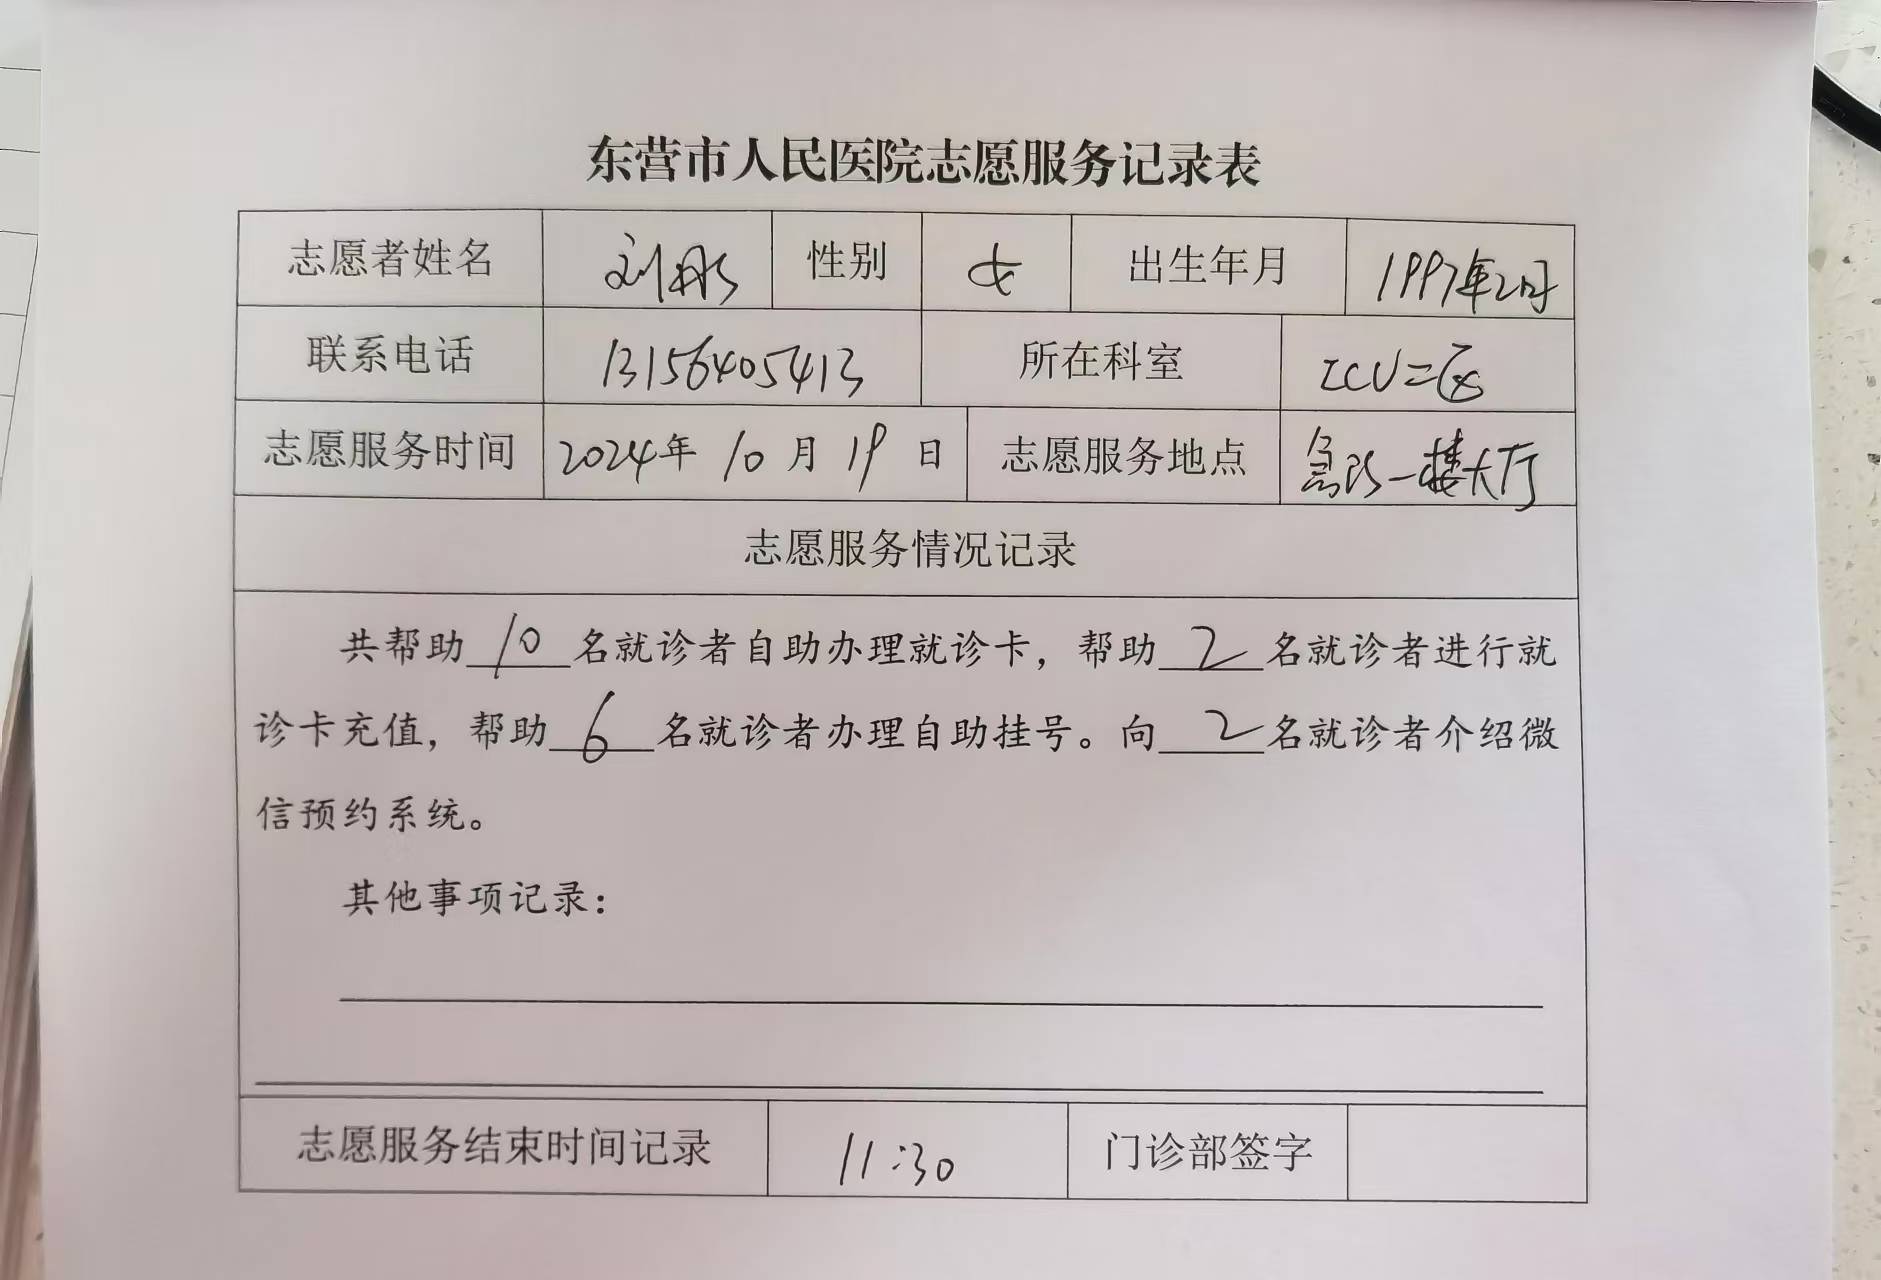 东营市人民医院志愿服务记录表
志愿者姓名 刘彤 性别 女 出生年月 1997年2月
联系电话 13156405413 所在科室 ICU二区
志愿服务时间 2024年 10 月 19 日 志愿服务地点 急诊一楼大厅
志愿服务情况记录
共帮助10名就诊者自助办理就诊卡，帮助2名就诊者进行就
诊卡充值，帮助6名就诊者办理自助挂号。向2名就诊者介绍微
信预约系统。
其他事项记录：
志愿服务结束时间记录 11:30 门诊部签字